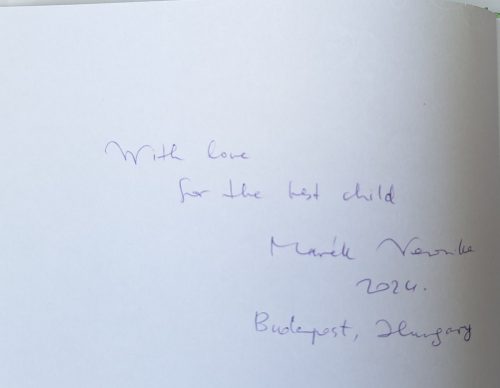 With love
for the best child
Marék Veronika
2024.
Budapest, Hungary